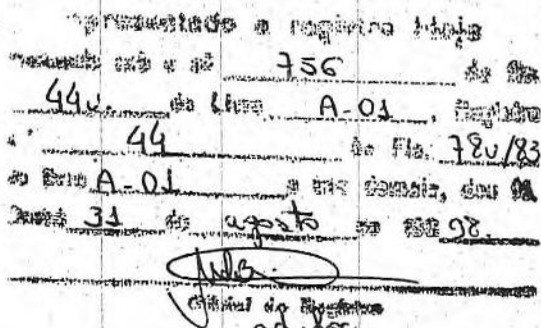 apresentado e registro Hoje
sob o nº 756 de fls.
44v. do Livro A-01, Registro
nº 44 de Fls. 78v/83
do Livro A-01 e me demais, dou fé
31 de agosto de 1998.
Oficial do Registro